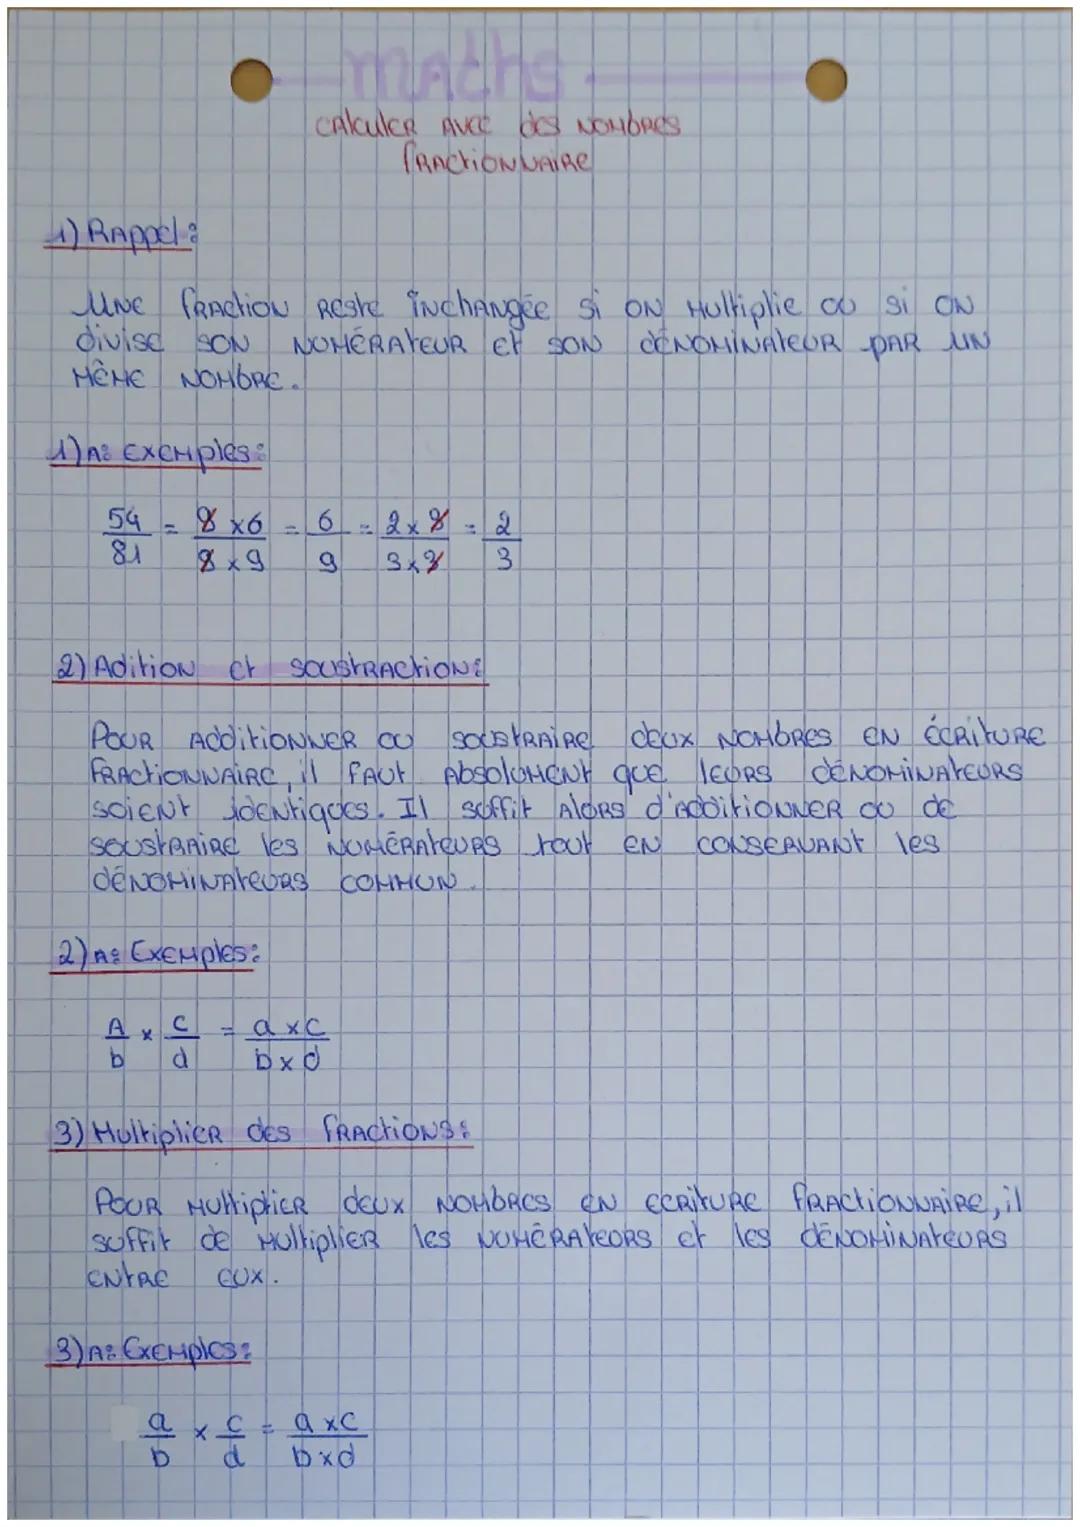 maths
CALCULER AVEC des NOMBRES
FRACTIONNAIRE
1) RAPPel :
UNE FRACTION RESTE INCHANGÉE Si ON MULTIPLIE OU Si ON
diviSe SON NUMÉRATEUR ET SON DÉNOMINATEUR PAR UN
MÊME NOMBRE.
1) A: EXEMPLES :
54/81 = 9×6/9×9 = 6/9 = 2×3/3×3 = 2/3
2) Adition et SOUSTRACTION :
POUR ADDITIONNER OU SOUSTRAIRE deux NOMBRES EN ÉCRITURE
FRACTIONNAIRE, il FAUT ABSOLUMENT que leurs DÉNOMINATEURS
SOIENT identiques. Il suffit Alors d'ADDITIONNER OU de
SOUSTRAIRE les NUMÉRATEURS tout EN CONSERVANT les
DÉNOMINATEURS COMMUN.
2) A: Exemples :
A/b × c/d = a×c/b×d
3) Multiplier des FRACTIONS :
POUR Multiplier deux NOMBRES EN ECRITURE FRACTIONNAIRE, il
suffit de multiplier les NUMÉRATEURS et les DÉNOMINATEURS
ENTRE EUX.
3) A: Exemples :
a/b × c/d = a×c/b×d